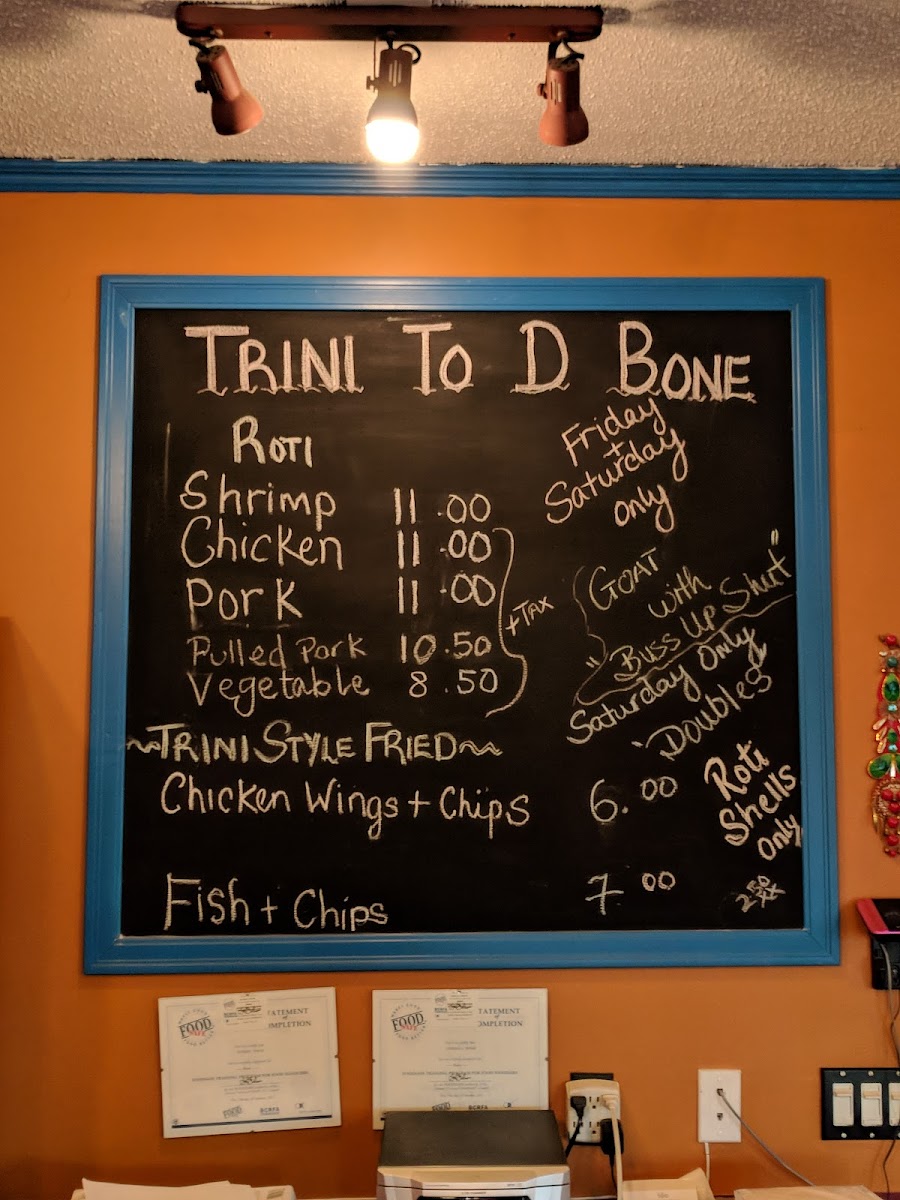 TRINI TO D BONE
ROTI
Shrimp 11.00
Chicken 11.00
Pork 11.00
Pulled Pork 10.50
Vegetable 8.50
+TAX
Friday
+
Saturday
only
GOAT
with
"BUSS UP Shut"
Saturday Only
"Doubles"
~TRINI STYLE FRIED~
Chicken Wings + Chips 6.00
Fish + Chips 7 00
Roti
Shells
Only
2 50
FOOD
STATEMENT
of
COMPLETION
FOOD
STATEMENT
of
COMPLETION